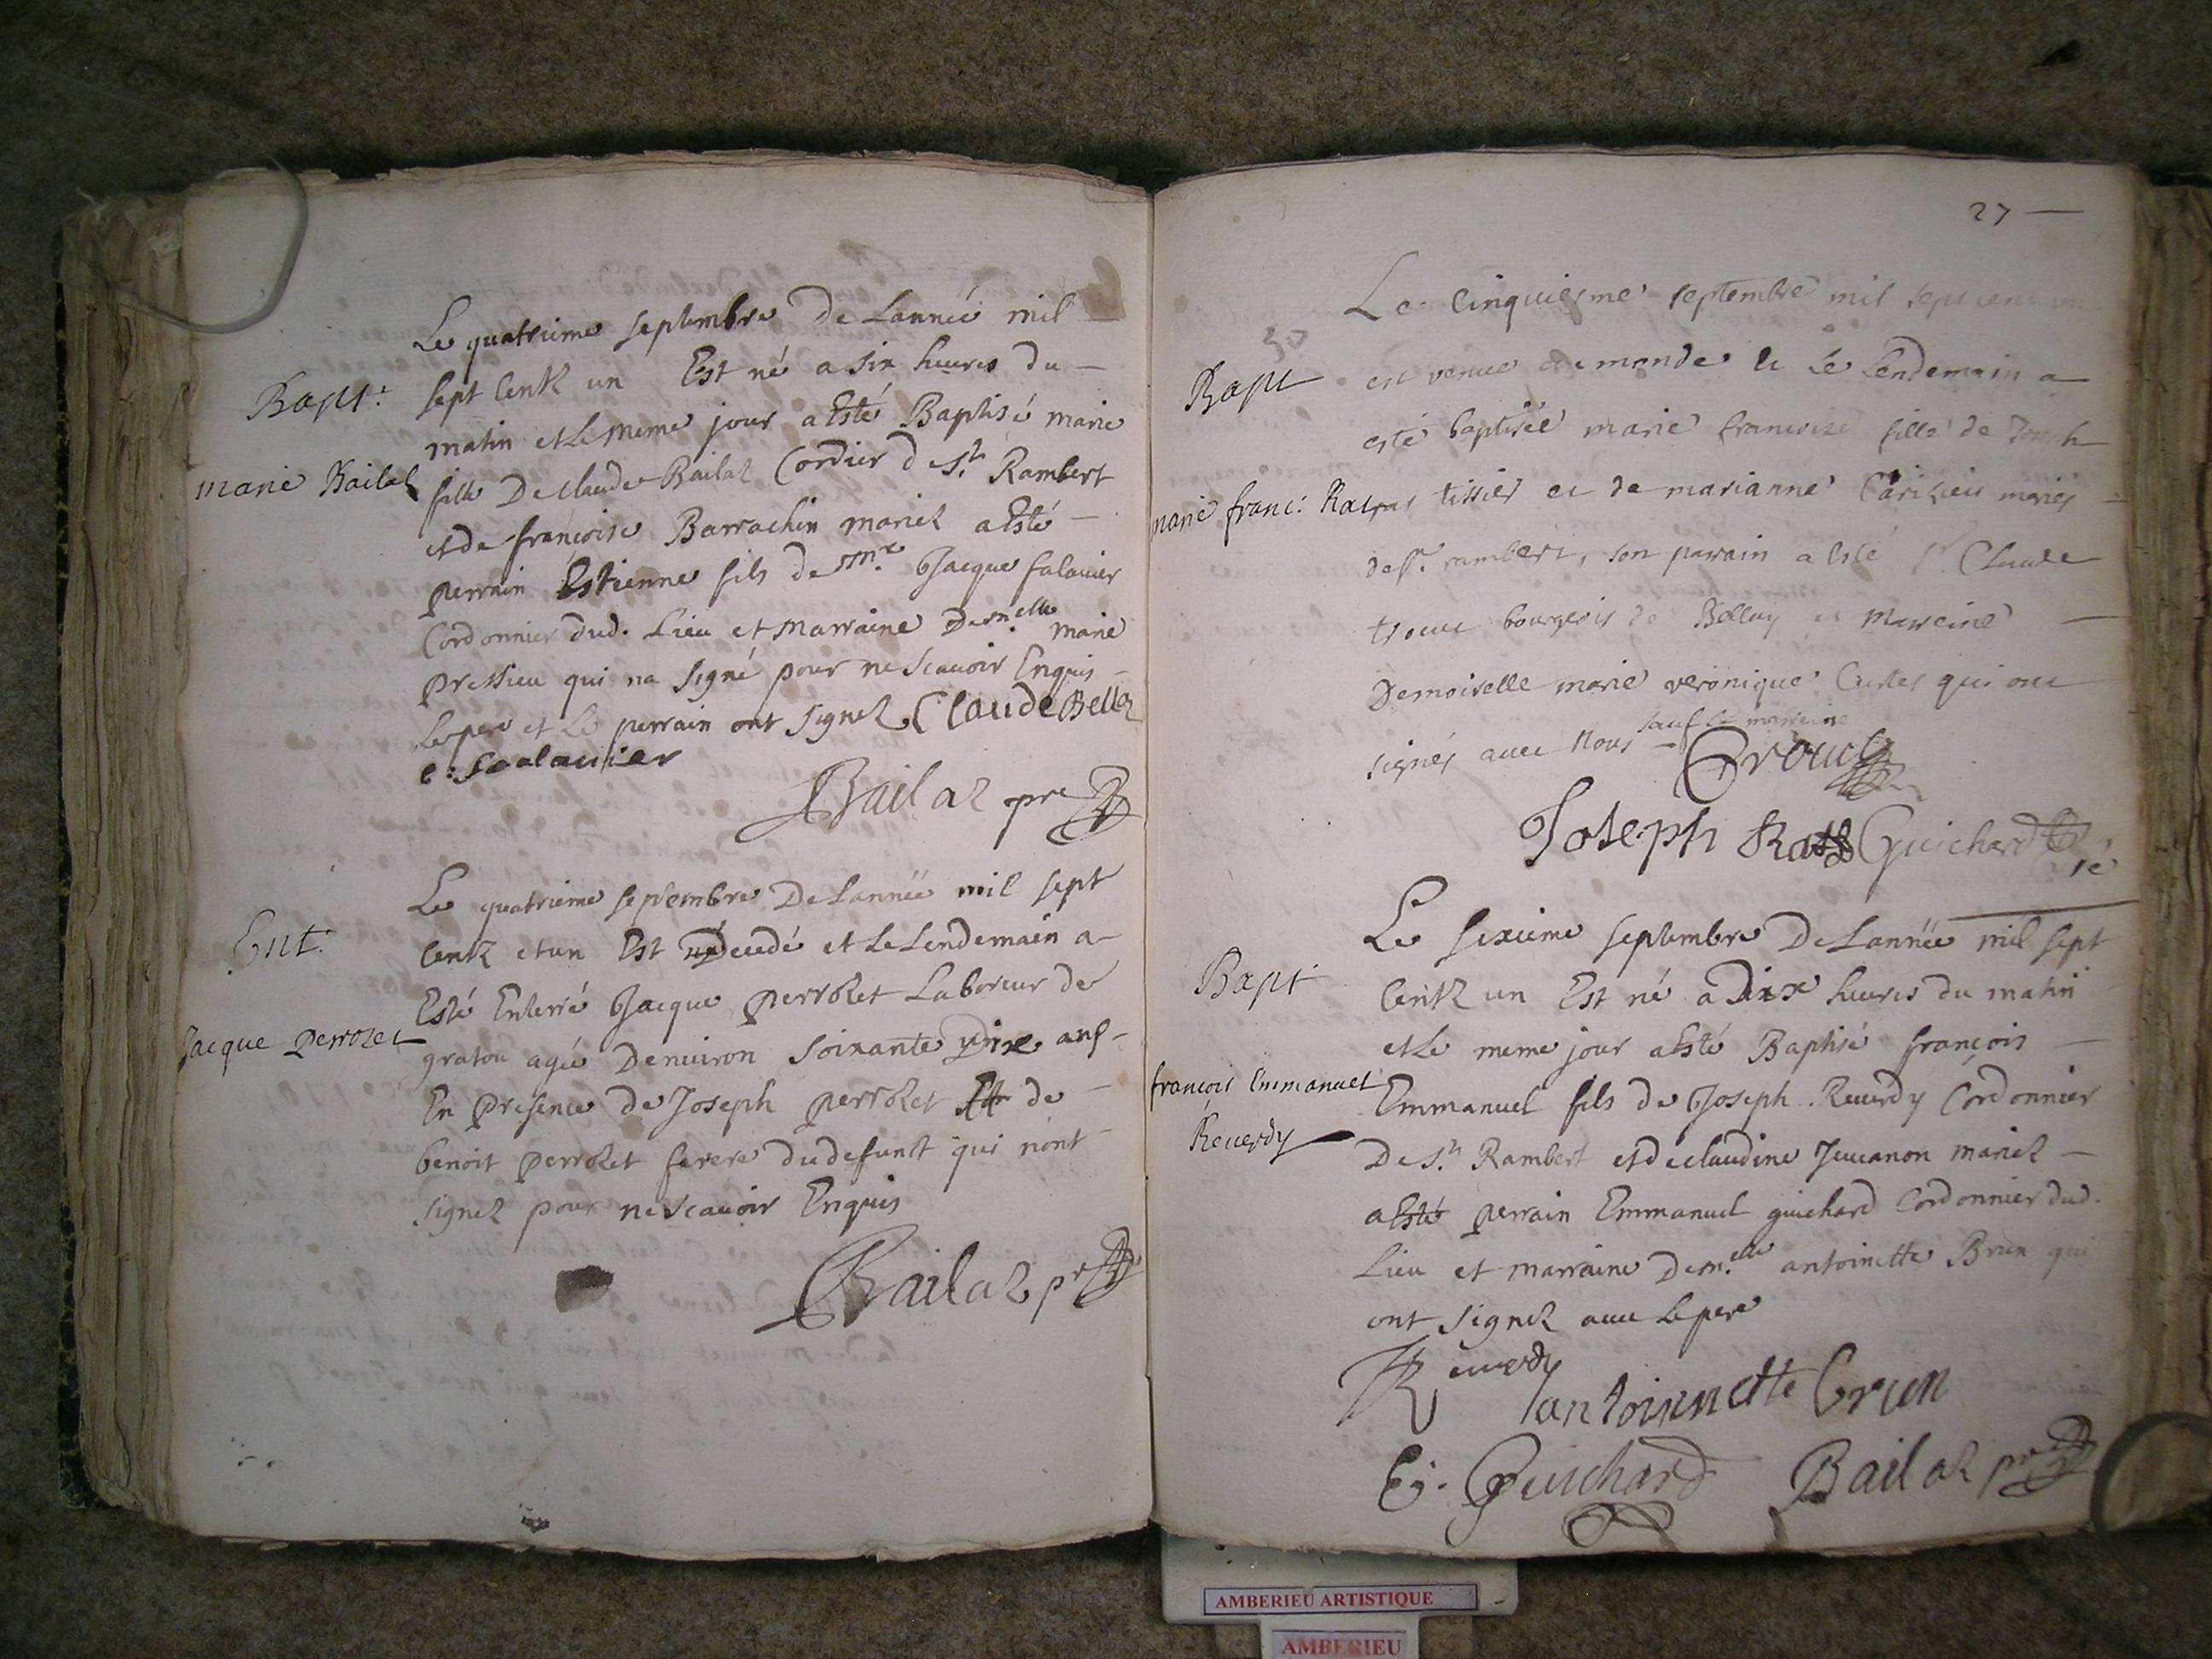 Le quatrieme septembre De Lannéé mil
Bapt.
sept centz un Est né a six heures du
matin et Le meme jour a Esté Baptisé marie
marie Bailaz
fille De claude Bailaz Cordier de St. Rambert
et de françoise Barrachin mariez a Esté
perrain Estienne fils de mr. Jacque falavier
Cordonnier dud. Lieu et marraine Dem.elle marie
pressieu qui na signé pour ne scavoir Enquis
Le pere et Le perrain ont signez Claude Bellaz
e: fealavier
Bailaz pre
Le quatrieme septembre De Lannéé mil sept
Ent.
centz et un Est Decedé et Le Lendemain a
Esté Enterré Jacque perrozet Laboreur de
Jacque perrozet
gratou agéé Denviron soixante Dixe ans
En presence de Joseph perrozet Et de
benoit perrozet ferere du defunct qui nont
signez pour ne scavoir Enquis
Bailaz pre
27
Le Cinquiesme septembre mil sept cent un
30
Bapt
est venue au monde et le Lendemain a
esté baptisée marie francoise fille de Joseph
marie franc: Rat
tissier et de marianne maries
de st. rambert, son parain a Esté sr Claude
trouc bourgeois de Bellay et Marreine
Demoiselle marie veronique qui ont
signés avec Nous sauf la marreine
Trouc
Joseph Rat Guichard
Le sixieme septembre De Lannéé mil sept
Bapt
centz un Est né a Dixe heures du matin
et Le meme jour a Esté Baptisé françois
françois Emmanuel
Emmanuel fils de Joseph Reverdy Cordonnier
Reverdy
De St. Rambert et de claudine Juvanon mariez
a Esté perrain Emmanuel guichard Cordonnier dud.
Lieu et marraine Dem.elle antoinette Brun qui
ont signez avec Le pere
Reverdy
antoinnette brun
E. Guichard Bailaz pre
AMBERIEU ARTISTIQUE
AMBERIEU